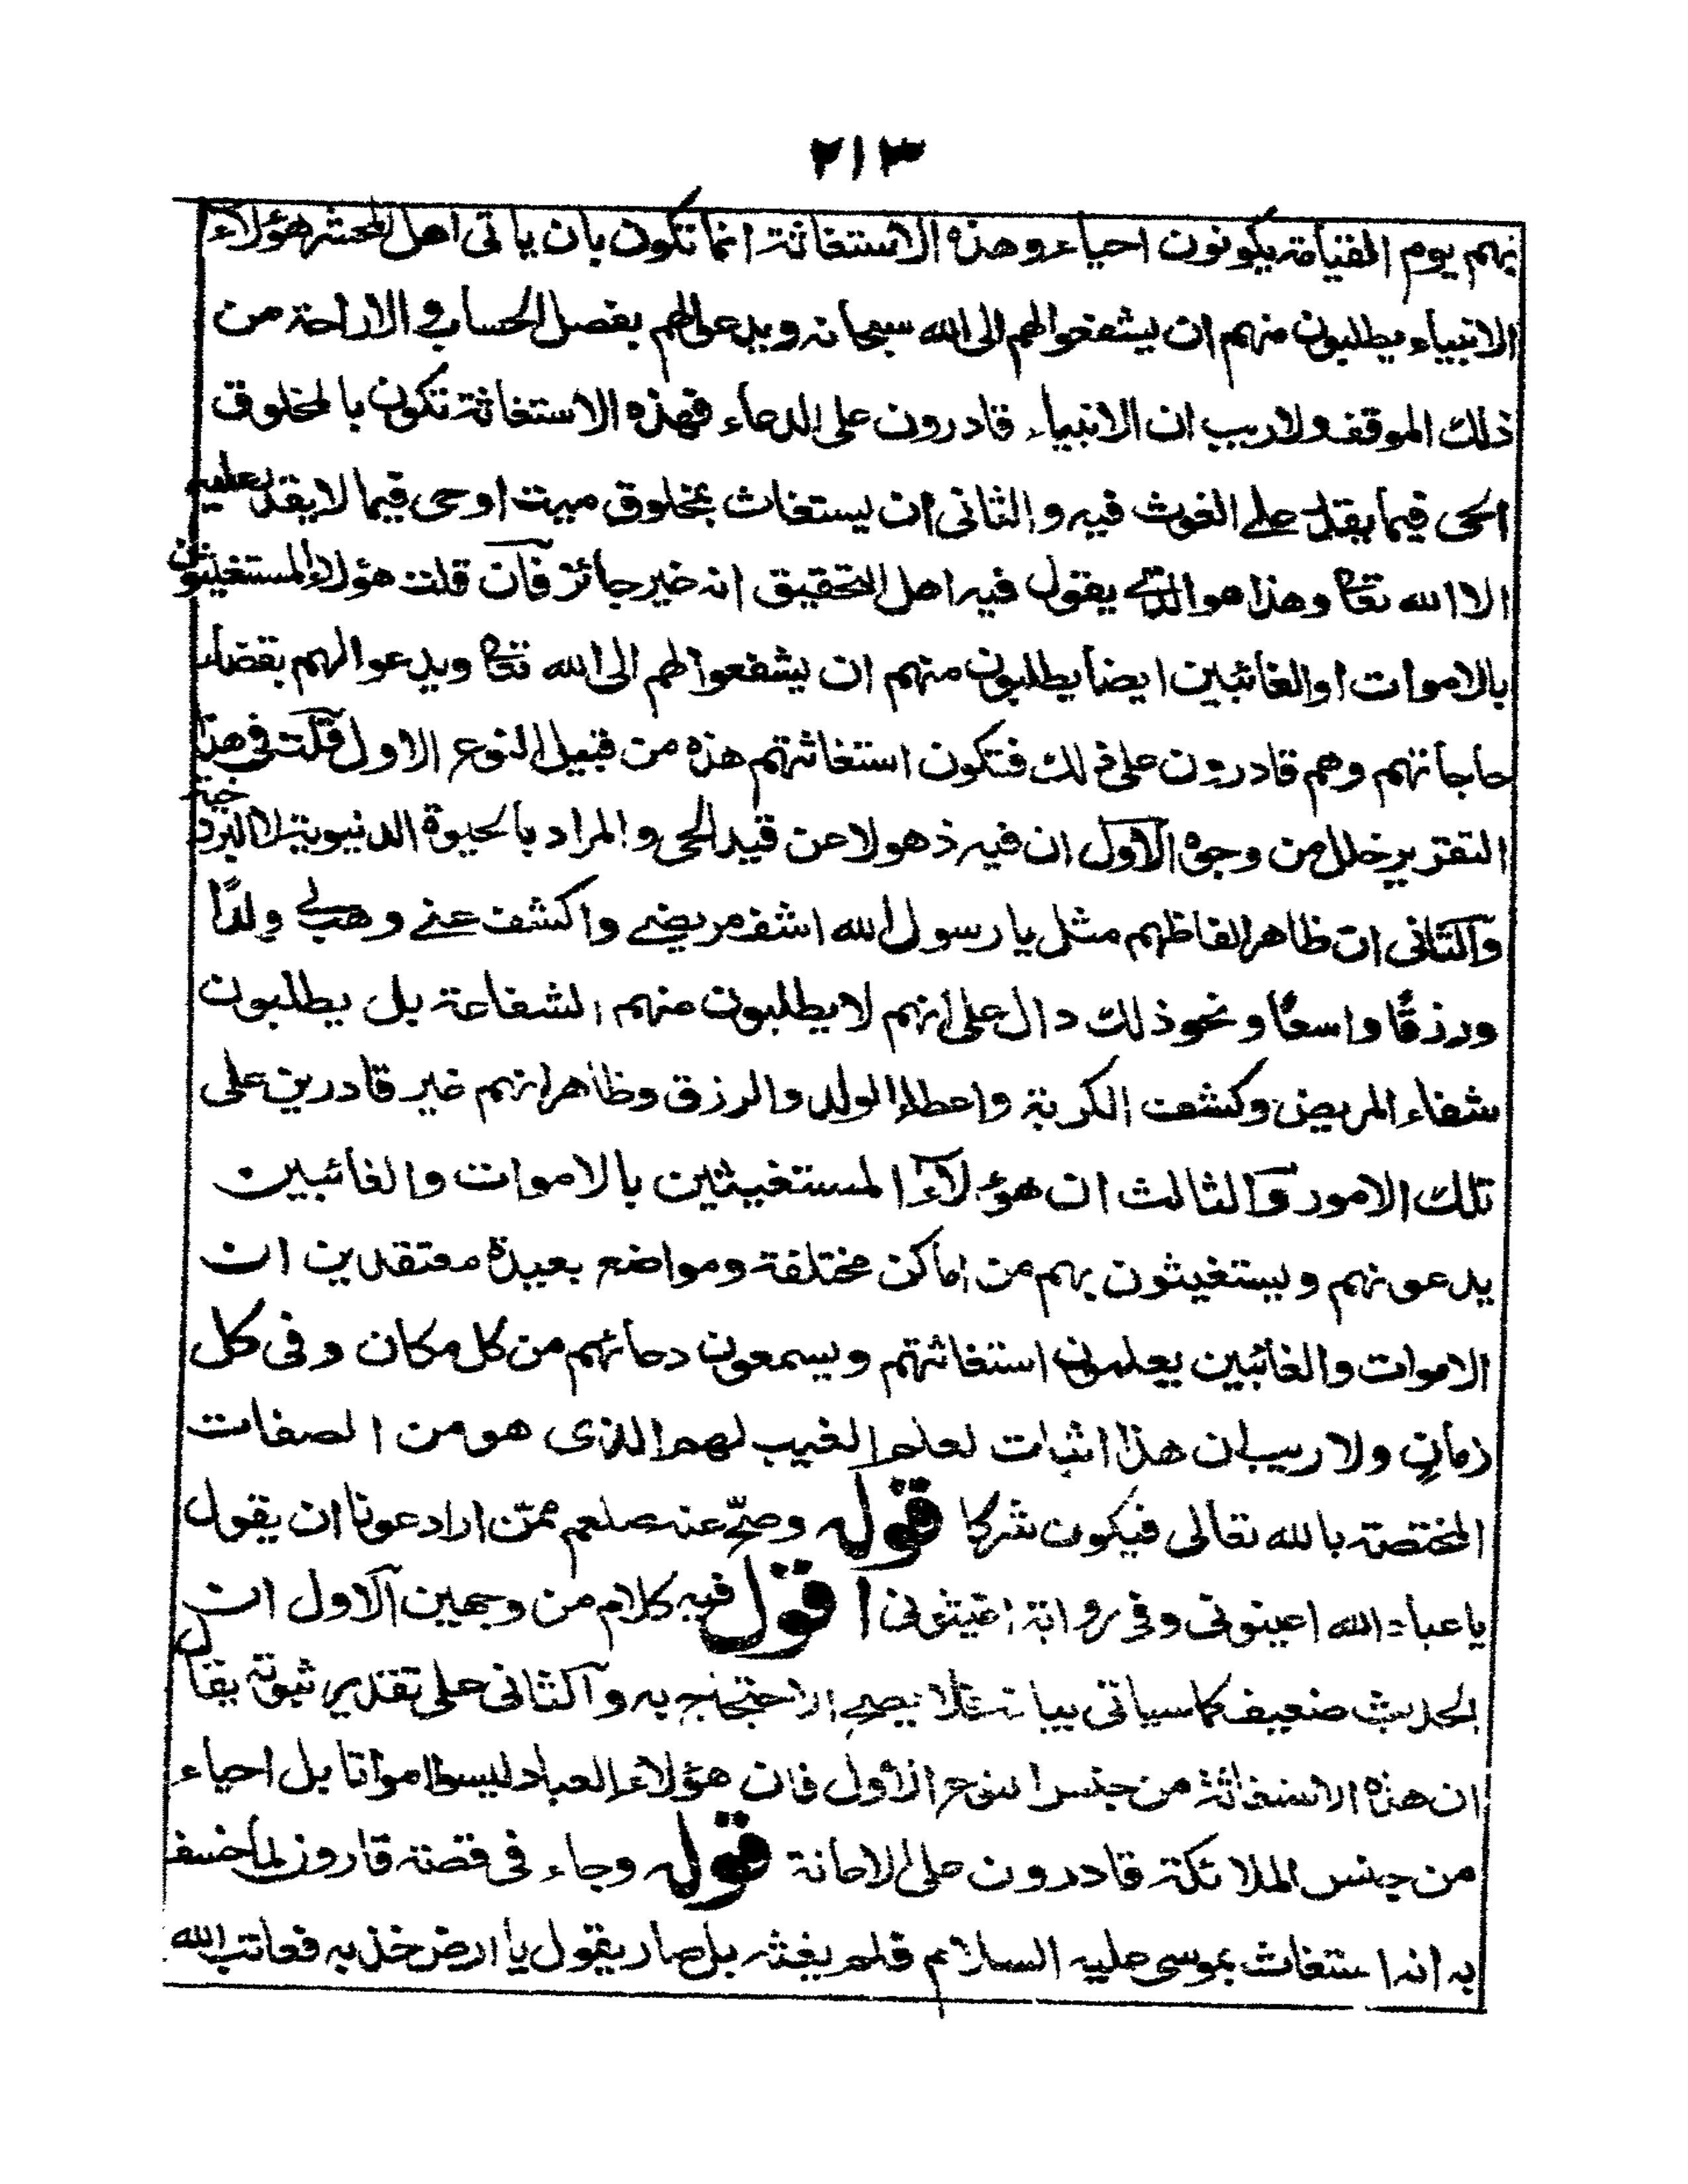 ٢١٣
نهم يوم القيامة يكونون احياء وهذه الاستغاثة انما تكون بان ياتى اهل المحشر هؤلاء
الانبياء يطلبون منهم ان يشفعوا لهم الى الله سبحانه ويدعوا لهم بفصل الحساب و الاراحة من
ذلك الموقف ولاريب ان الانبياء قادرون على الدعاء فهذه الاستغاثة تكون بالمخلوق
الحى فيما يقدر على الغوث فيه و الثانى ان يستغاث بمخلوق ميت او حى فيما لا يقدر عليه
الا الله تعا وهذا هو الذى يقول فيه اهل التحقيق انه غير جائز فان قلت هؤلاء المستغيثون
بالاموات او الغائبين ايضا يطلبون منهم ان يشفعوا لهم الى الله تعا ويدعوا لهم بقضاء
حاجاتهم وهم قادرون على ذلك فتكون استغاثتهم هذه من قبيل النوع الاول قلت فى هذا
التقرير خلل من وجوه الاول ان فيه ذهولا عن قيد الحى و المراد بالحيوة الدنيوية لا البرزخية
والثانى ان ظاهر الفاظهم مثل يا رسول الله اشف مريضى واكشف عنى وهب لى ولدًا
ورزقًا واسعًا و نحو ذلك دال على انهم لا يطلبون منهم الشفاعة بل يطلبون
شفاء المريض وكشف الكربة واعطاء الولد والرزق وظاهر انهم غير قادرين على
تلك الامور والثالث ان هؤلاء المستغيثين بالاموات والغائبين
يدعونهم و يستغيثون بهم من اماكن مختلفة ومواضع بعيدة معتقدين ان
الاموات والغائبين يعلمون استغاثتهم ويسمعون دعائهم من كل مكان وفى كل
زمان ولا ريب ان هذا اثبات لعلم الغيب لهم الذى هو من الصفات
المختصة بالله تعالى فيكون شركا قوله وصحّ عنه صلعم ممن اراد عونا ان يقول
يا عباد الله اعينونى وفى رواية اغيثونى اقول فيه كلام من وجهين الاول ان
الحديث ضعيف كما سياتى بيانه فلا يصح الاحتجاج به والثانى على تقدير ثبوته يقال
ان هذه الاستغاثة من جنس النوع الاول فان هؤلاء العباد ليسوا امواتا بل احياء
من جنس الملائكة قادرون على الاعانة قوله وجاء فى قصة قارون لما خسف
به انه استغاث بموسى عليه السلام فلم يغثه بل صار يقول يا ارض خذيه فعاتب الله